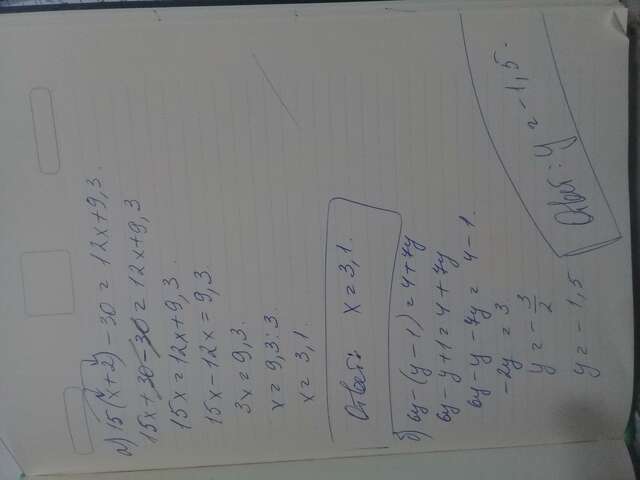 а) 15(x+2)-30 = 12x+9,3.
15x+30-30 = 12x+9,3
15x = 12x+9,3.
15x-12x = 9,3.
3x = 9,3.
x = 9,3:3
x = 3,1.
Ответ: x = 3,1.
б) 6y-(y-1) = 4+7y
6y-y+1 = 4+7y
6y-y-7y = 4-1.
-2y = 3
y = -3/2
y = -1,5
Ответ: y = -1,5.